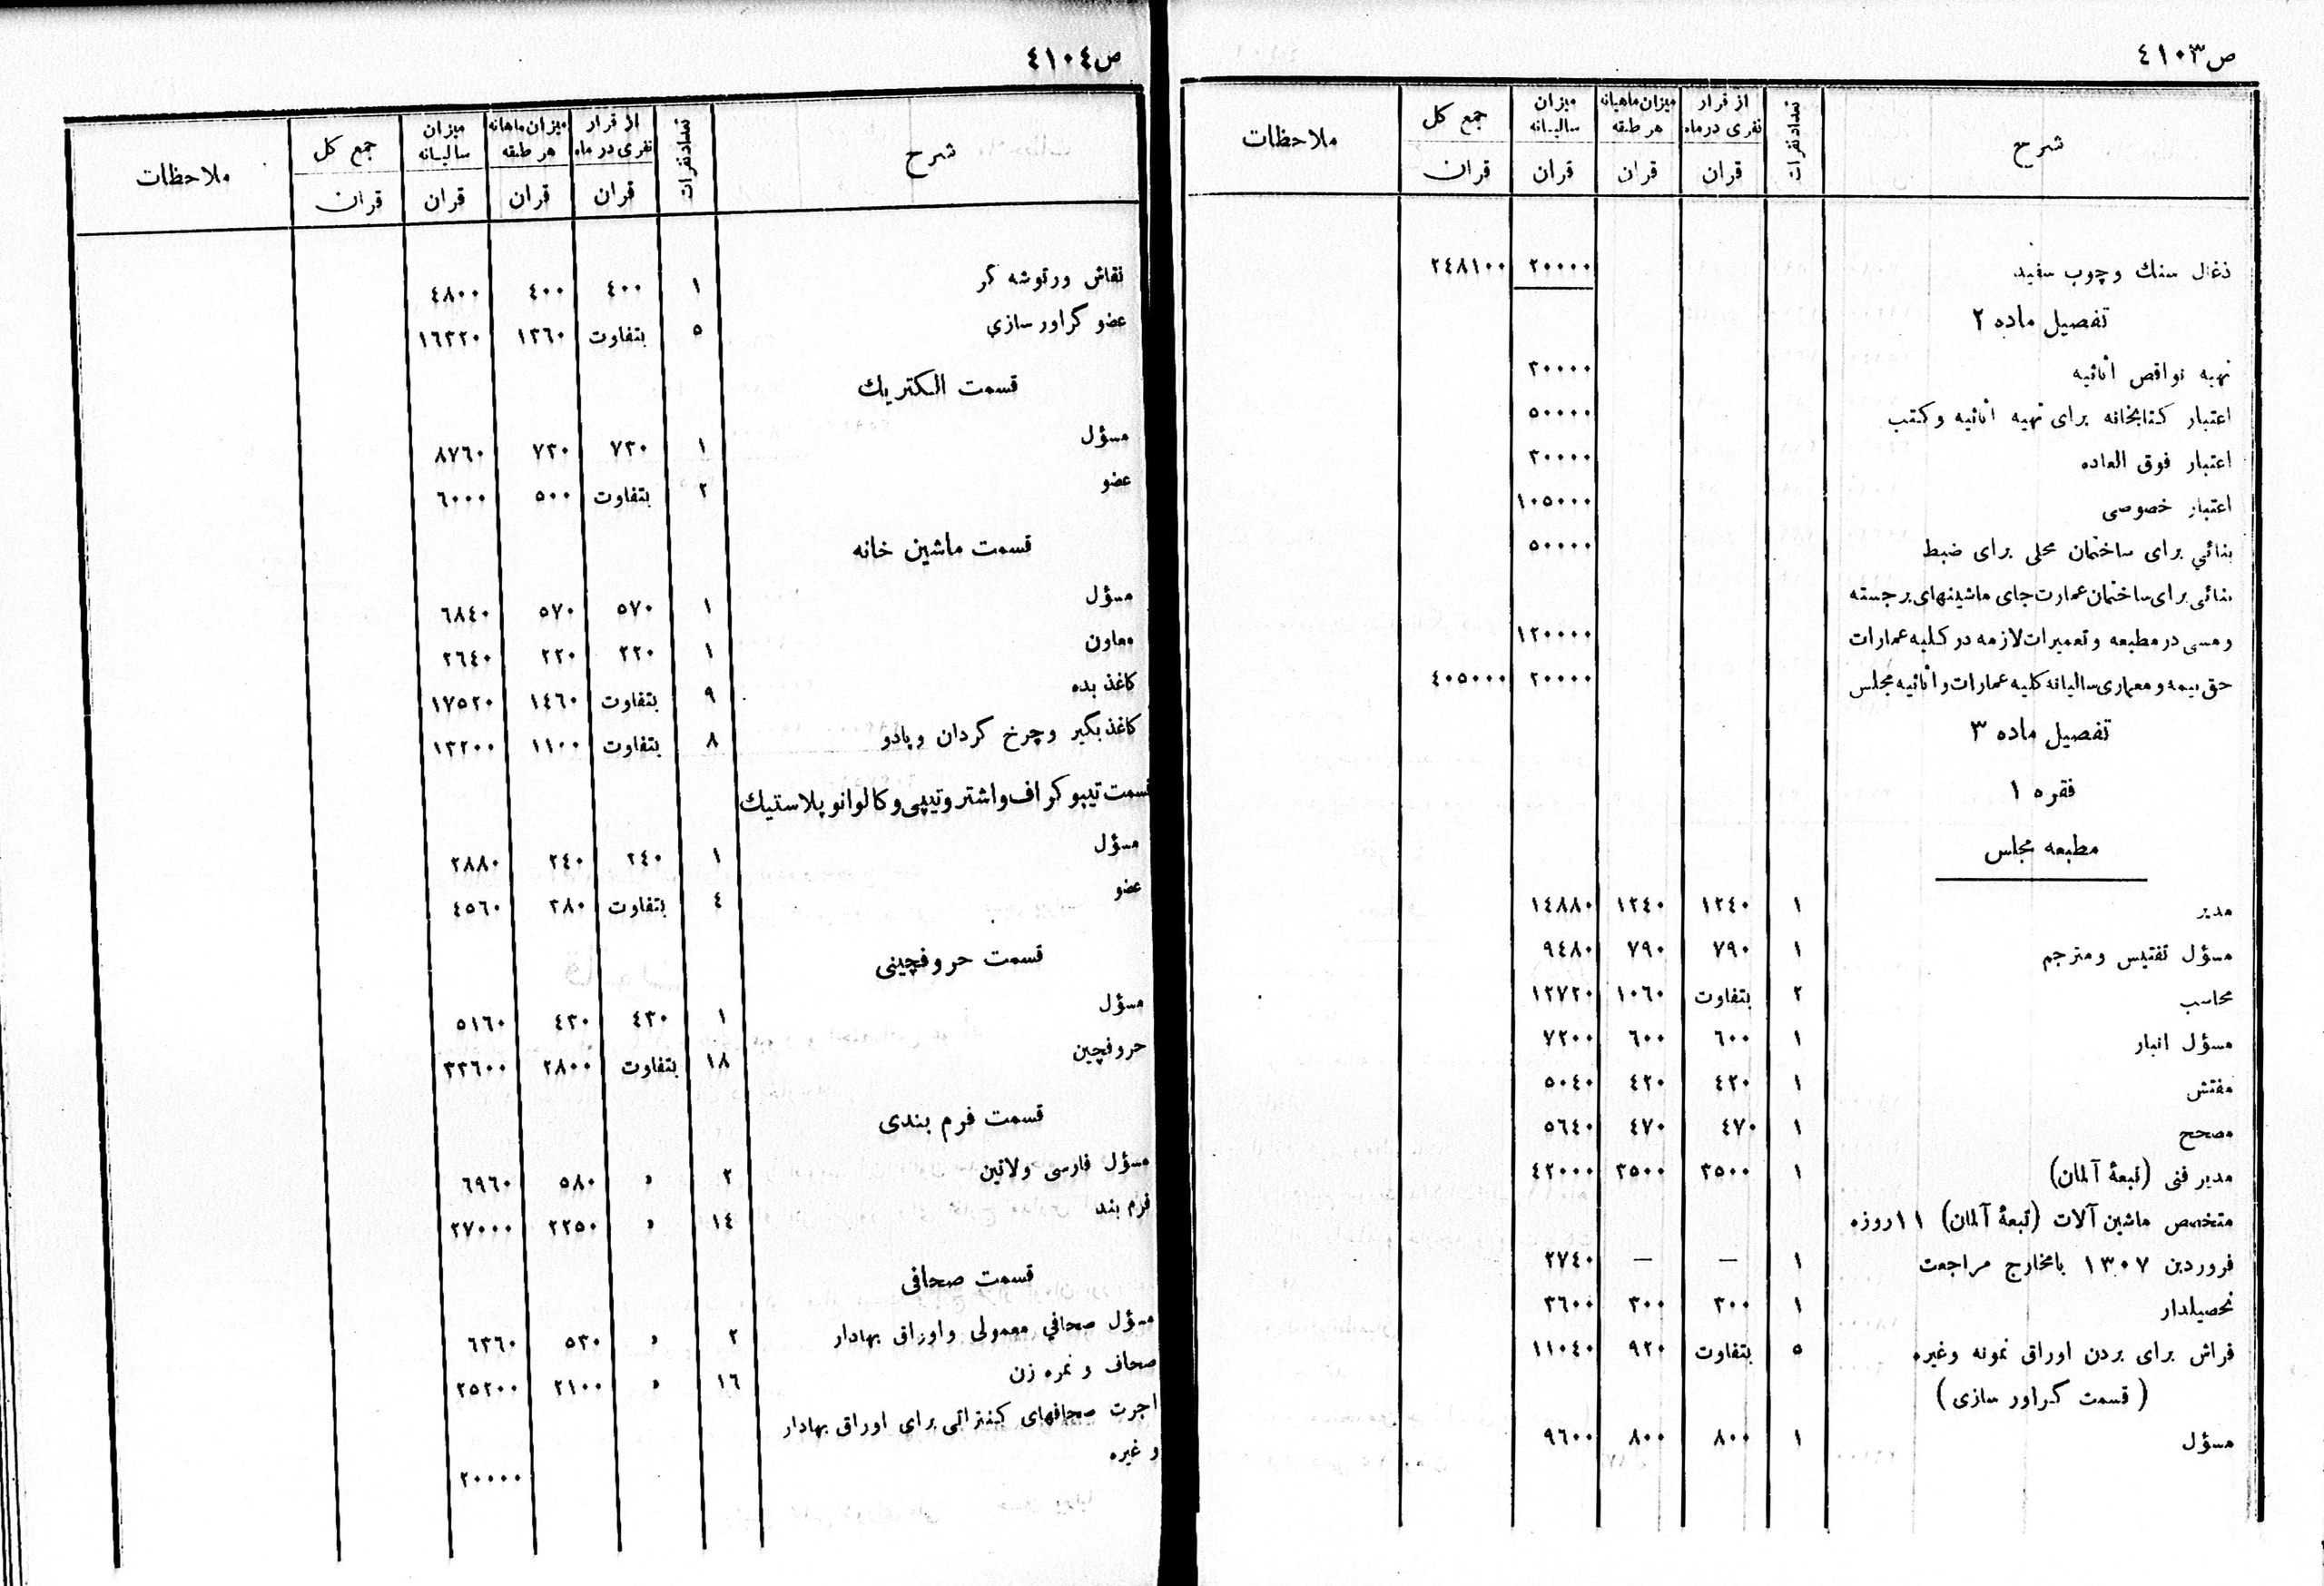 ص۴۱۰۳
شرح | تعداد نفرات | از قرار نفری در ماه | میزان ماهیانه هر طبقه | میزان سالیانه | جمع کل | ملاحظات
قران | قران | قران | قران
ذغال سنك و چوب سفید ۲۰۰۰۰ ۲۴۸۱۰۰
تفصیل ماده ۲
تهیه نواقص أثاثیه ۳۰۰۰۰
اعتبار کتابخانه برای تهیه اثاثیه و کتب ۵۰۰۰۰
اعتبار فوق العاده ۳۰۰۰۰
اعتبار خصوصی ۱۰۵۰۰۰
بنائي برای ساختمان محلی برای ضبط ۵۰۰۰۰
بنائی برای ساختمان عمارت جای ماشینهای برجسته
و مسی در مطبعه و تعمیرات لازمه در کلیه عمارات ۱۲۰۰۰۰
حق بیمه و معماری سالیانه کلیه عمارات و أثاثیه مجلس ۲۰۰۰۰ ۴۰۵۰۰۰
تفصیل ماده ۳
فقره ۱
مطبعه مجلس
مدیر ۱ ۱۲۴۰ ۱۲۴۰ ۱۴۸۸۰
مسؤل تفتیس و مترجم ۱ ۷۹۰ ۷۹۰ ۹۴۸۰
محاسب ۲ بتفاوت ۱۰۶۰ ۱۲۷۲۰
مسؤل انبار ۱ ۶۰۰ ۶۰۰ ۷۲۰۰
مفتش ۱ ۴۲۰ ۴۲۰ ۵۰۴۰
مصحح ۱ ۴۷۰ ۴۷۰ ۵۶۴۰
مدیر فنی (تبعهٔ آلمان) ۱ ۳۵۰۰ ۳۵۰۰ ۴۲۰۰۰
متخصص ماشین آلات (تبعهٔ آلمان) ۱۱ روزه
فروردین ۱۳۰۷ با مخارج مراجعت ۱ — — ۲۷۴۰
تحصیلدار ۱ ۳۰۰ ۳۰۰ ۳۶۰۰
فراش برای بردن اوراق نمونه و غیره ۵ بتفاوت ۹۲۰ ۱۱۰۴۰
(قسمت گراور سازی)
مسؤل ۱ ۸۰۰ ۸۰۰ ۹۶۰۰
ص۴۱۰۴
شرح | تعداد نفرات | از قرار نفری در ماه | میزان ماهانه هر طبقه | میزان سالیانه | جمع کل | ملاحظات
قران | قران | قران | قران
نقاش و رتوشه گر ۱ ۴۰۰ ۴۰۰ ۴۸۰۰
عضو گراور سازي ۵ بتفاوت ۱۳۶۰ ۱۶۳۲۰
قسمت الکتریك
مسؤل ۱ ۷۳۰ ۷۳۰ ۸۷۶۰
عضو ۲ بتفاوت ۵۰۰ ۶۰۰۰
قسمت ماشین خانه
مسؤل ۱ ۵۷۰ ۵۷۰ ۶۸۴۰
معاون ۱ ۲۲۰ ۲۲۰ ۲۶۴۰
کاغذ بده ۹ بتفاوت ۱۴۶۰ ۱۷۵۲۰
کاغذ بگیر و چرخ گردان و پادو ۸ بتفاوت ۱۱۰۰ ۱۳۲۰۰
قسمت تیپو گراف و اشتروتیپی و کالوانو پلاستیك
مسؤل ۱ ۲۴۰ ۲۴۰ ۲۸۸۰
عضو ۴ بتفاوت ۳۸۰ ۴۵۶۰
قسمت حروفچینی
مسؤل ۱ ۴۳۰ ۴۳۰ ۵۱۶۰
حروفچین ۱۸ بتفاوت ۲۸۰۰ ۳۳۶۰۰
قسمت فرم بندی
مسؤل فارسی و لاتین ۲ » ۵۸۰ ۶۹۶۰
فرم بند ۱۴ » ۲۲۵۰ ۲۷۰۰۰
قسمت صحافی
مسؤل صحافي معمولی و اوراق بهادار ۲ » ۵۳۰ ۶۳۶۰
صحاف و نمره زن ۱۶ » ۲۱۰۰ ۲۵۲۰۰
اجرت صحافهای کنتراتی برای اوراق بهادار
و غیره ۲۰۰۰۰